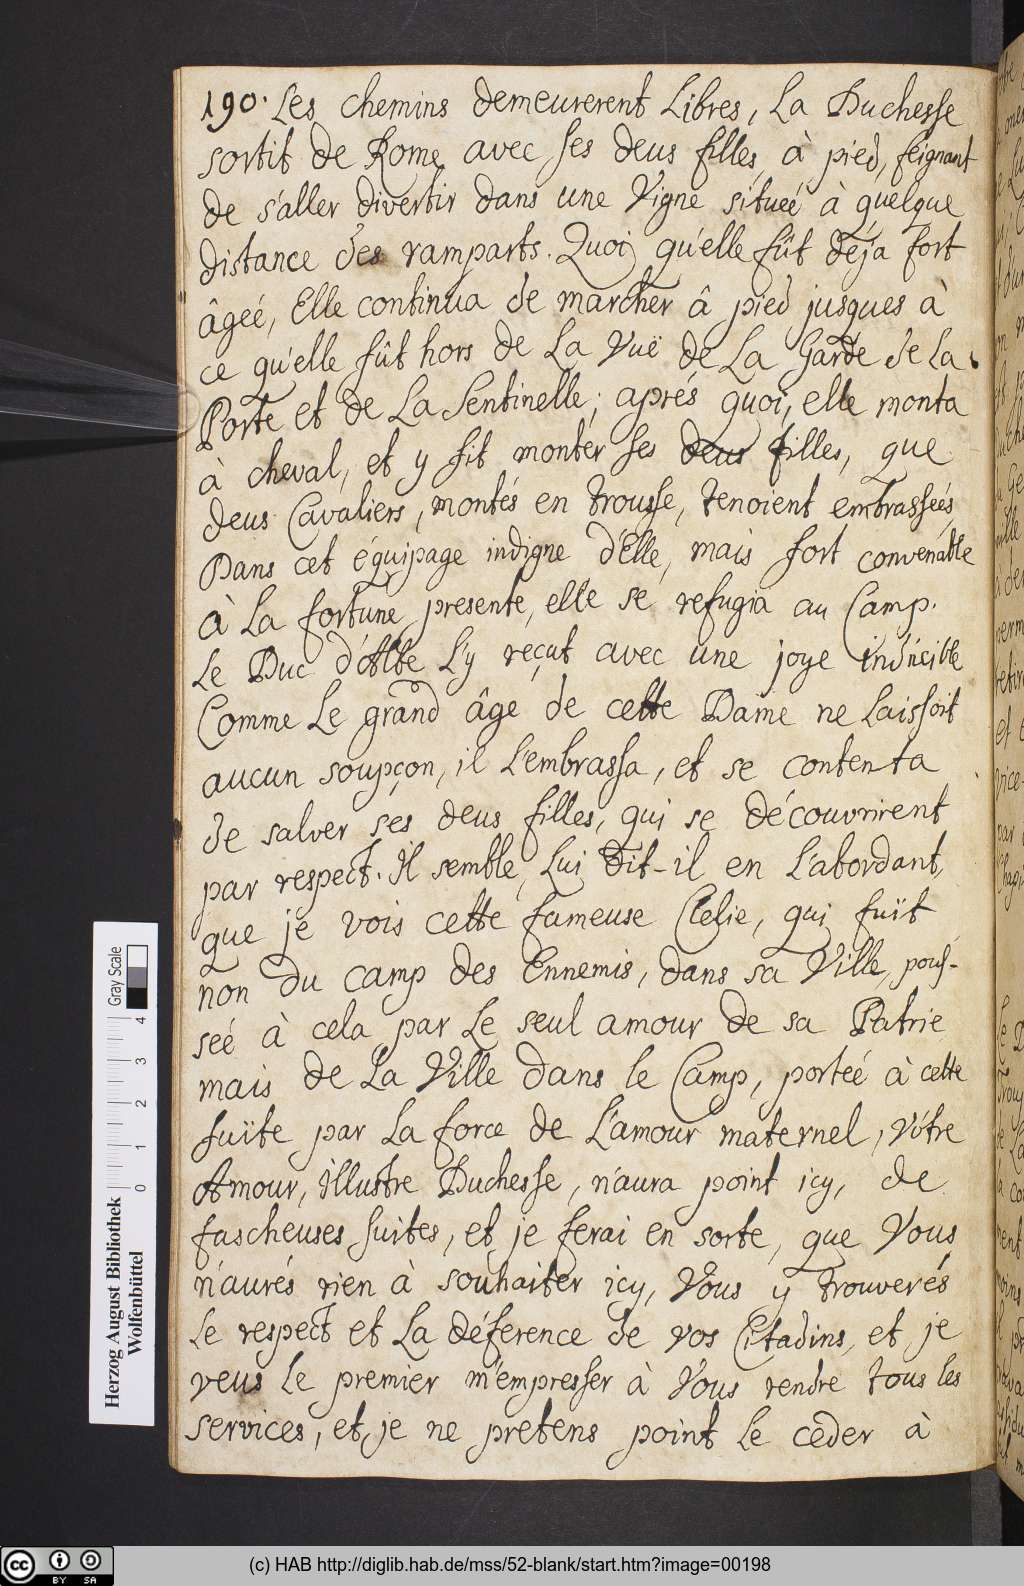 190. Les chemins demeurerent Libres, La Duchesse
sortit de Rome avec ses deus filles, à pied, feignant
de s'aller divertir dans une Vigne situeé à quelque
distance des ramparts. Quoi qu'elle fût déja fort
âgeé, Elle continua de marcher â pied jusques à
ce qu'elle fût hors de La Vuë de La Garde de La
Porte et de La Sentinelle; aprés quoi, elle monta
à cheval, et y fit monter ses deus filles, que
deus Cavaliers, montés en trousse, tenoient embrasseés
Dans cet équipage indigne d'Elle, mais fort convenable
à La fortune presente, elle se refugia au Camp.
Le Duc d'Albe L'y reçut avec une joye indicible
Comme Le grand âge de cette Dame ne Laissoit
aucun soupçon, il L'embrassa, et se contenta
de salver ses deus filles, qui se découvrirent
par respect. Il semble, Lui Dit-il en L'abordant,
que je vois cette fameuse Clelie, qui fuït
non du camp des Ennemis, dans sa Ville, pous-
seé à cela par Le seul amour de sa Patrie
mais de La Ville dans le Camp, porteé à cette
fuïte par La force de L'amour maternel, Vôtre
Amour, illustre Duchesse, n'aura point icy, de
fascheuses suites, et je ferai en sorte, que Vous
n'aurés rien à souhaiter icy, Vous y trouverés
Le respect et La déference de vos Citadins, et je
veus Le premier m'empresser à Vous rendre tous les
services, et je ne pretens point Le ceder à
Herzog August Bibliothek
Wolfenbüttel
Gray Scale
0 1 2 3 4
cc BY SA
(c) HAB http://diglib.hab.de/mss/52-blank/start.htm?image=00198